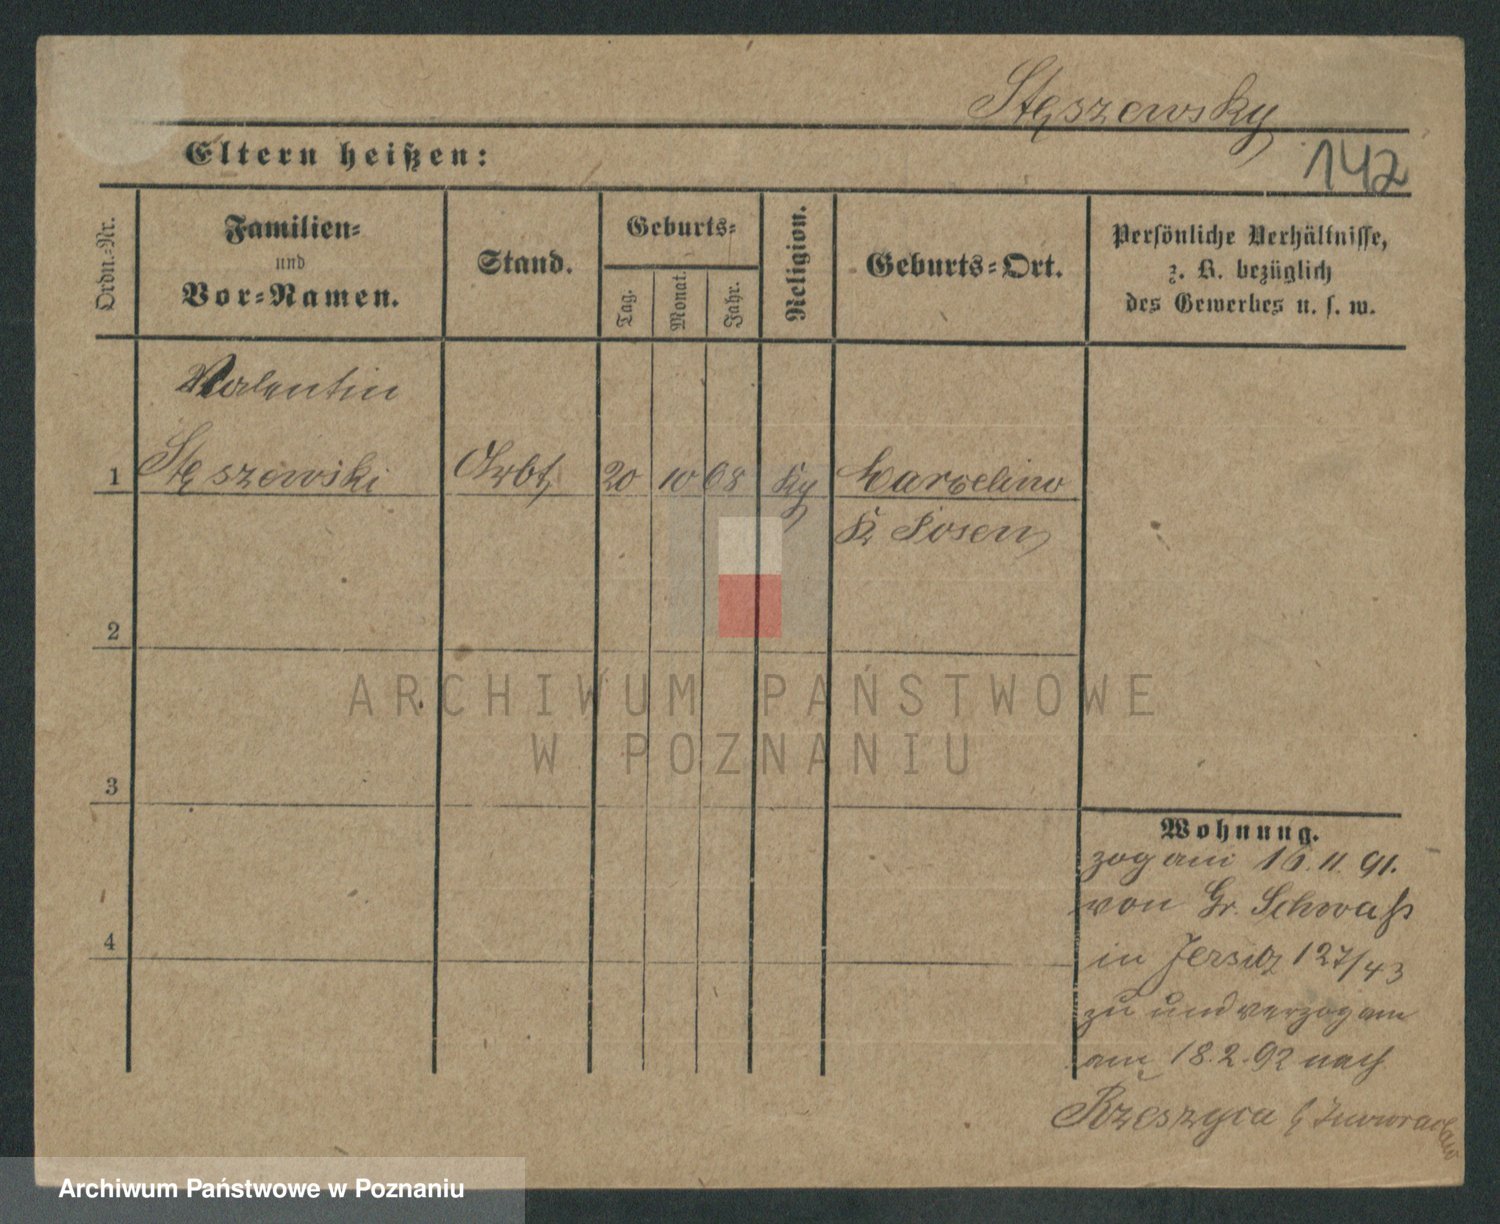 Stęszewsky
Eltern heißen:
142
Ordn.-Nr.
Familien-
und
Vor-Namen.
Stand.
Geburts-
Tag.
Monat.
Jahr.
Religion.
Geburts-Ort.
Persönliche Verhältnisse,
z. B. bezüglich
des Gewerbes u. s. w.
Valentin
1 Stęszewski Arbt 20 10 68 Marcelino
Kr Posen
2
3
4
Wohnung.
zog am 16.11.91.
von Gr. Schwaß
in Jersitz 127/43
zu und verzog am
am 18.2.92 nach
Rzeszyca b Inowraclaw
ARCHIWUM PAŃSTWOWE
W POZNANIU
Archiwum Państwowe w Poznaniu